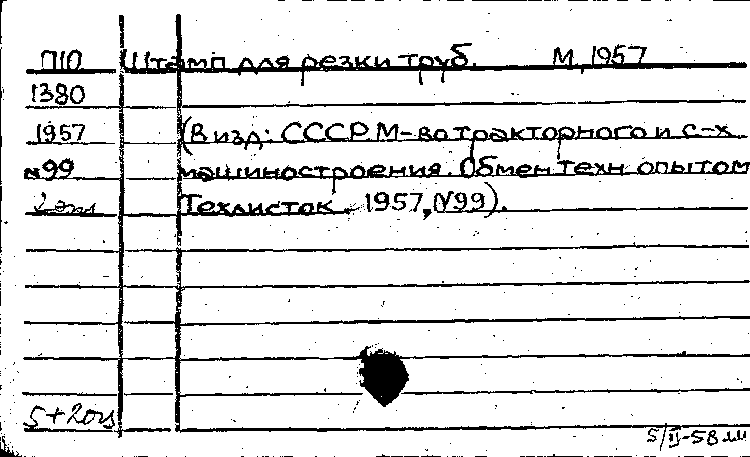 П10 Штамп для резки труб. М, 1957
1380
1957 (В изд: СССР М-во тракторного и с-х
N99 машиностроения. Обмен техн опытом
2 экз Техлисток. 1957, N99).
5/II-58